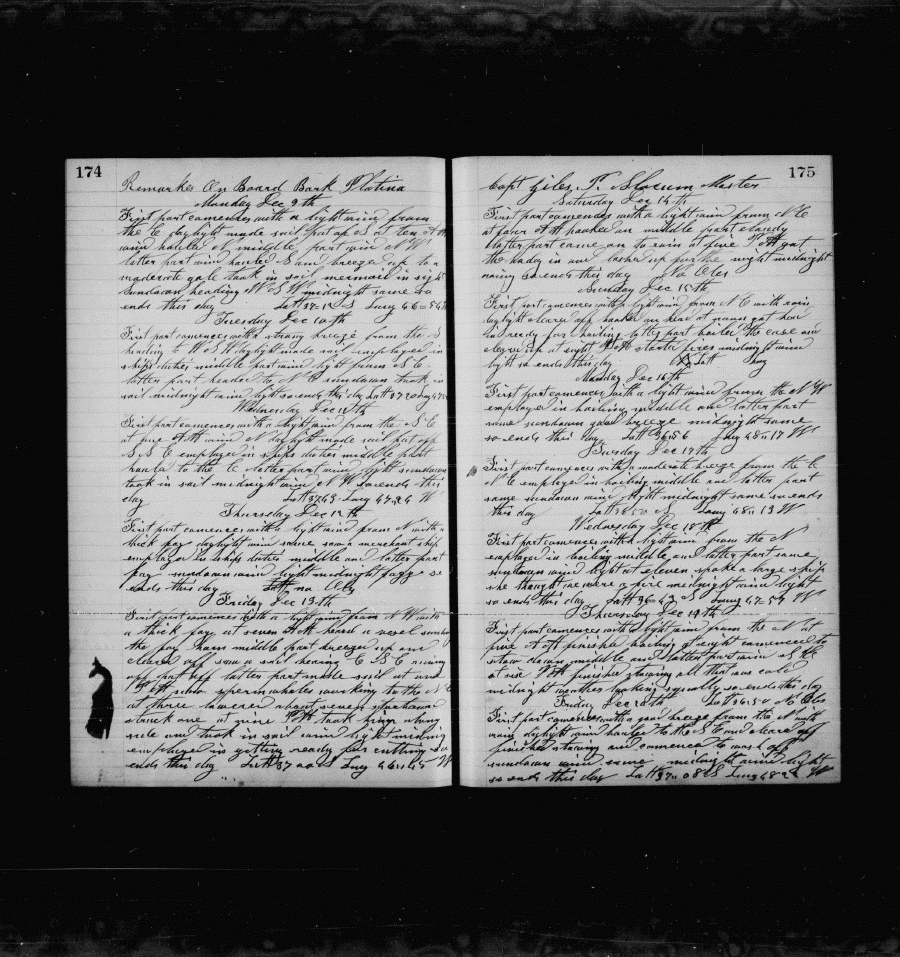 174
Remarks On Board Bark Platina
Monday Dec 9th
First part comences with a light wind from
the E daylight made sail put up S at ten A M
wind hauled N middle part wind N W
latter part wind hauled S and breezed up to a
moderate gale took in sail mermaid in sight
sundown heading W S W midnight same so
ends this day Latt 37-12 S Long 46=54
Tuesday Dec 10th
First part comences with a strong breeze from the S
heading to W S W daylight made sail employed in
ships duties middle part wind light from S E
latter part headed to N E sundown took in
sail midnight wind light so ends this day Latt 37
Wednesday Dec 11th
First part comences with a light wind from the S E
at five A M wind N daylight made sail put off
S S E employed in ships duties middle part
hauled to the E latter part wind light sundown
took in sail midnight wind N W so ends this
day Latt 37,43 Long 47,24 W
Thursday Dec 12th
First part comences with a light wind from N with
thick fog daylight wind same saw a merchant ship
employed in ships duties middle and latter part
fog sundown wind light midnight foggy so
ends this day Latt no Obs
Friday Dec 13th
First part comences with a light wind from N W with
a thick fog at seven A M heard a vesel sounding
the fog horn middle part breezed up and
cleared off saw a sail bearing E S E
off put off latter part made sail at one
P M saw spermwhales working to the N E
at three lowered about seven starboard
struck one at nine P M took him along
side and took in sail wind light midnight
employed in getting ready for cutting so
ends this day Latt 37 00 S Long 46,,45 W
175
Capt Giles, P. Slocum Master
Saturday Dec 14th
First part comences with a light wind from N E
at four A M hooked on middle part cloudy
latter part came on to rain at five P M got
the body in and lashed up for the night midnight
rainy so ends this day No Obs
Sunday Dec 15th
First part comences with a light wind from N E with rain
daylight cleared off hooked on head at noon got head
in ready for boiling latter part boiled the case and
cleared up at eight P M started fires midnight wind
light so ends this day Latt Long
Monday Dec 16th
First part comences with a light wind from the N W
employed in boiling middle and latter part
same sundown good breeze midnight same
so ends this day Latt 36,56 Long 48,,17 W
Tuesday Dec 17th
First part comences with a moderate breeze from the E
N E employed in boiling middle and latter part
same sundown wind light midnight same so ends
this day Latt 36 50 S Long 48,,13 W
Wednesday Dec 18th
First part comences with a light wind from the N
employed in boiling middle and latter part same
sundown wind light at eleven spoke a large ship
she thought we were a fire midnight wind light
so ends this day Latt 36=43 S Long 47=59 W
Thursday Dec 19th
First part comences with a light wind from the N at
five A M finished boiling at eight comenced to
stow down middle and latter part wind S E
at six P M finished stowing all that was cold
midnight weather looking squally so ends this day
Friday Dec 20th Latt 36,50 No Obs
First part comences with a good breeze from the N with
rain daylight wind hauled to the S E and cleared off
finished stowing and comenced to wash off
sundown wind same midnight wind light
so ends this day Latt 37,,08 S Long 48,2 W